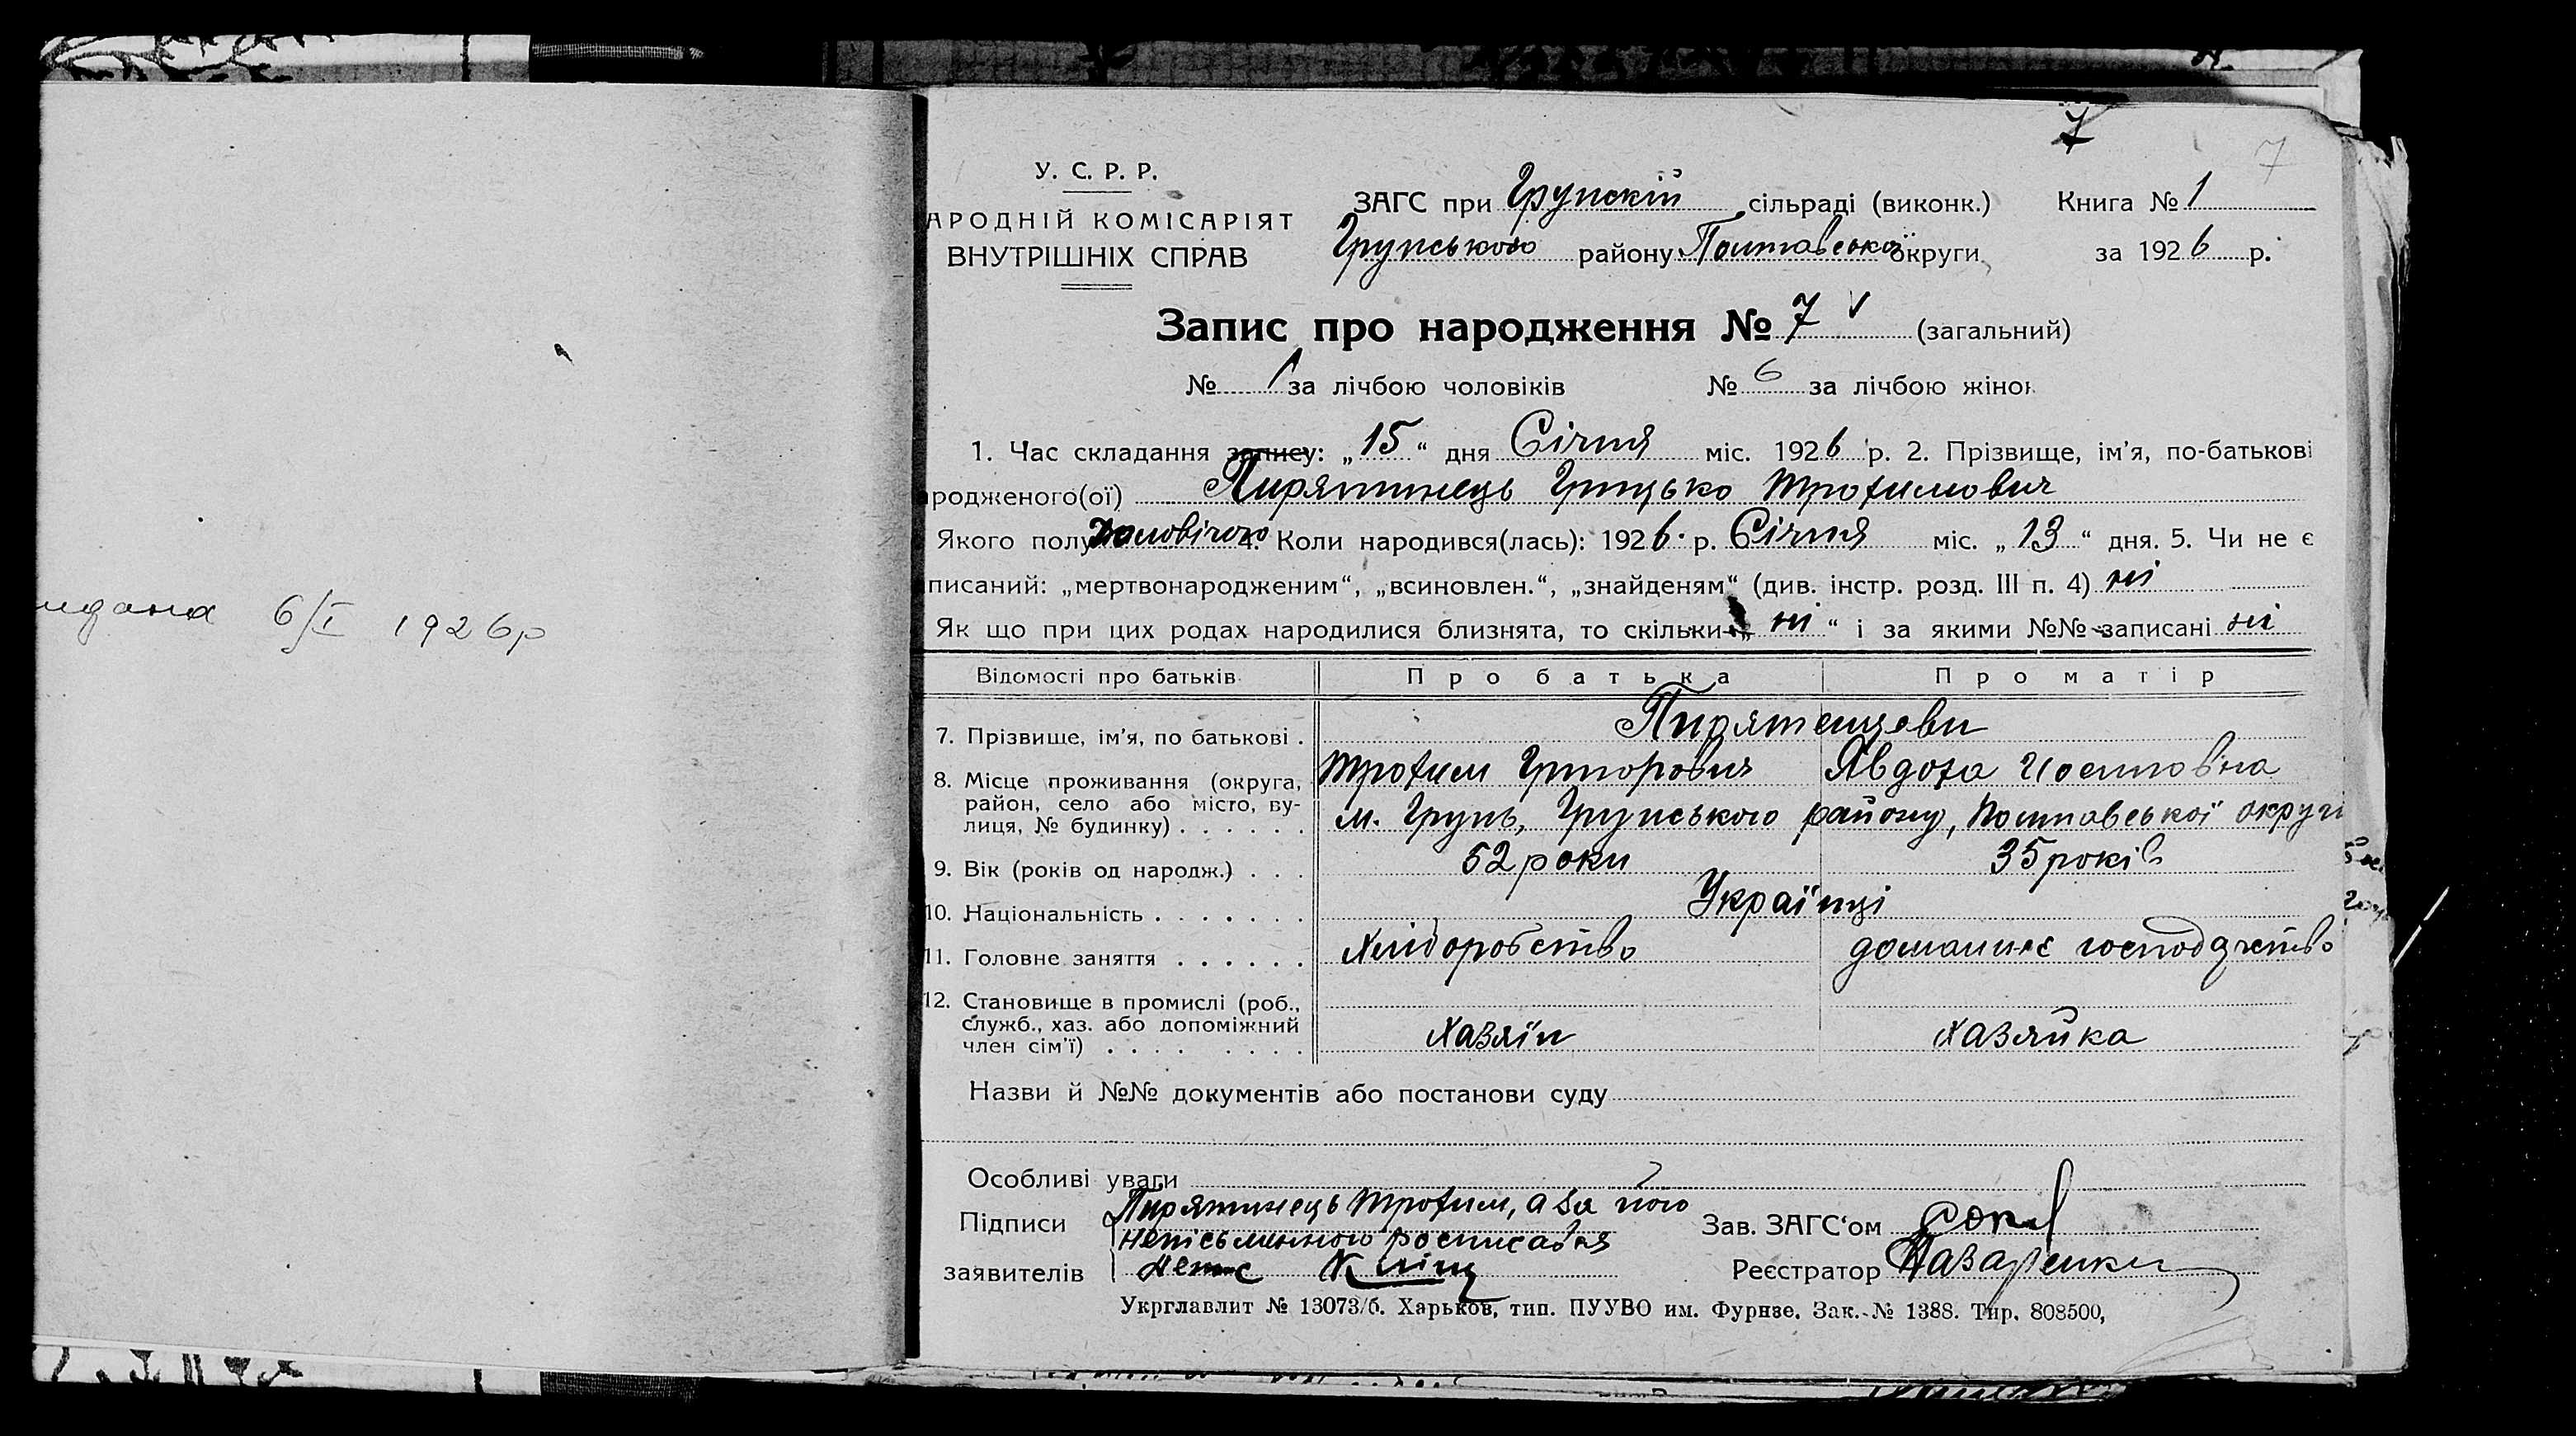 7
7
У. С. Р. Р.
АРОДНІЙ КОМІСАРІЯТ
ВНУТРІШНІХ СПРАВ
ЗАГС при Грунській сільраді (виконк.) Книга № 1
Грунського району Полтавської округи за 1926 р.
Запис про народження № 7 (загальний)
№ 1 за лічбою чоловіків № 6 за лічбою жінок
1. Час складання запису: „15“ дня Січня міс. 1926 р. 2. Прізвище, ім'я, по-батькові
родженого(ої) Пирятинець Грицько Трохимович
Якого полу чоловічого 4. Коли народився(лась): 1926 р. Січня міс. „13“ дня. 5. Чи не є
писаний: „мертвонародженим“, „всиновлен.“, „знайденям“ (див. інстр. розд. III п. 4) ні
Як що при цих родах народилися близнята, то скільки „ні“ і за якими №№ записані ні
идана 6/I 1926р
Відомості про батьків Про батька Про матір
7. Прізвище, ім'я, по батькові . Пирятенцеви
Трохим Григорович Явдоха Йостовна
8. Місце проживання (округа,
район, село або місто, ву-
лиця, № будинку) . . . . . . м. Грунь, Грунського району, Полтавської округи
9. Вік (років од народж.) . . . 52 роки 35 років
10. Національність . . . . . . . Українці
11. Головне заняття . . . . . . хліборобство домашнє господарство
12. Становище в промислі (роб.,
служб., хаз. або допоміжний
член сім'ї) . . . . . . . . хазяїн хазяйка
Назви й №№ документів або постанови суду
Особливі уваги
Підписи Пирятинець Трохим, а за його
неписьменного росписався
заявителів
Зав. ЗАГС'ом
Реєстратор Назаренко
Укрглавлит № 13073/б. Харьков, тип. ПУУВО им. Фурнзе. Зак. № 1388. Тир. 808500,